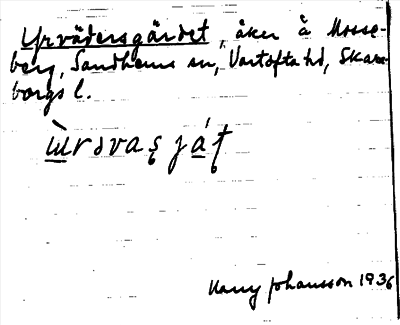 Yrvädersgärdet, åker å Mosse-
berg, Sandhems sn, Vartofta hd, Skara-
borgs l.
Harry Johansson 1936